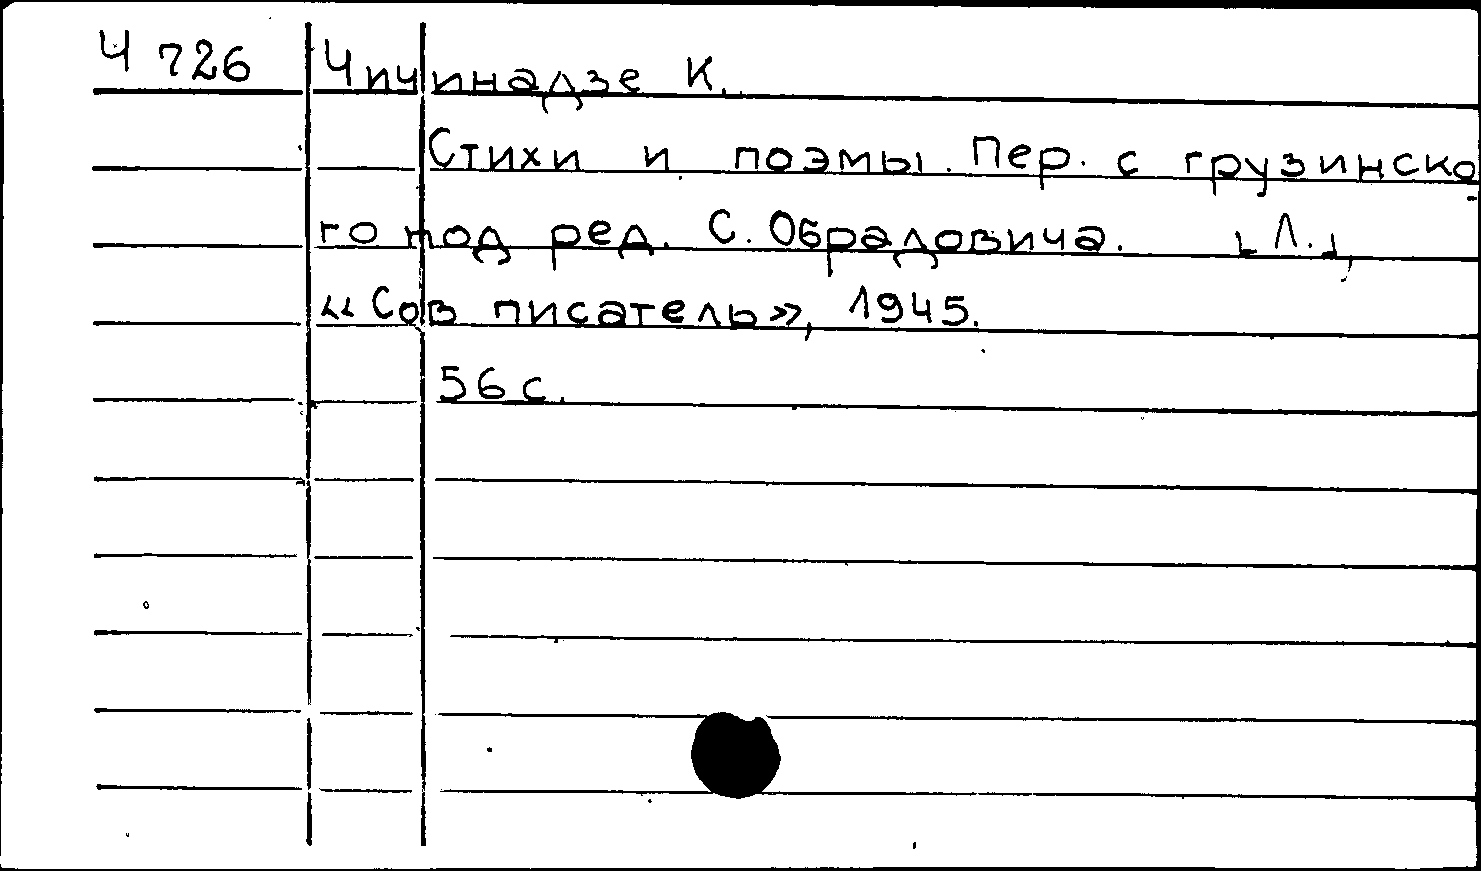 Ч 726 Чичинадзе К.
Стихи и поэмы. Пер. с грузинско
го под ред. С. Обрадовича. [Л.],
«Сов писатель», 1945.
56 с.